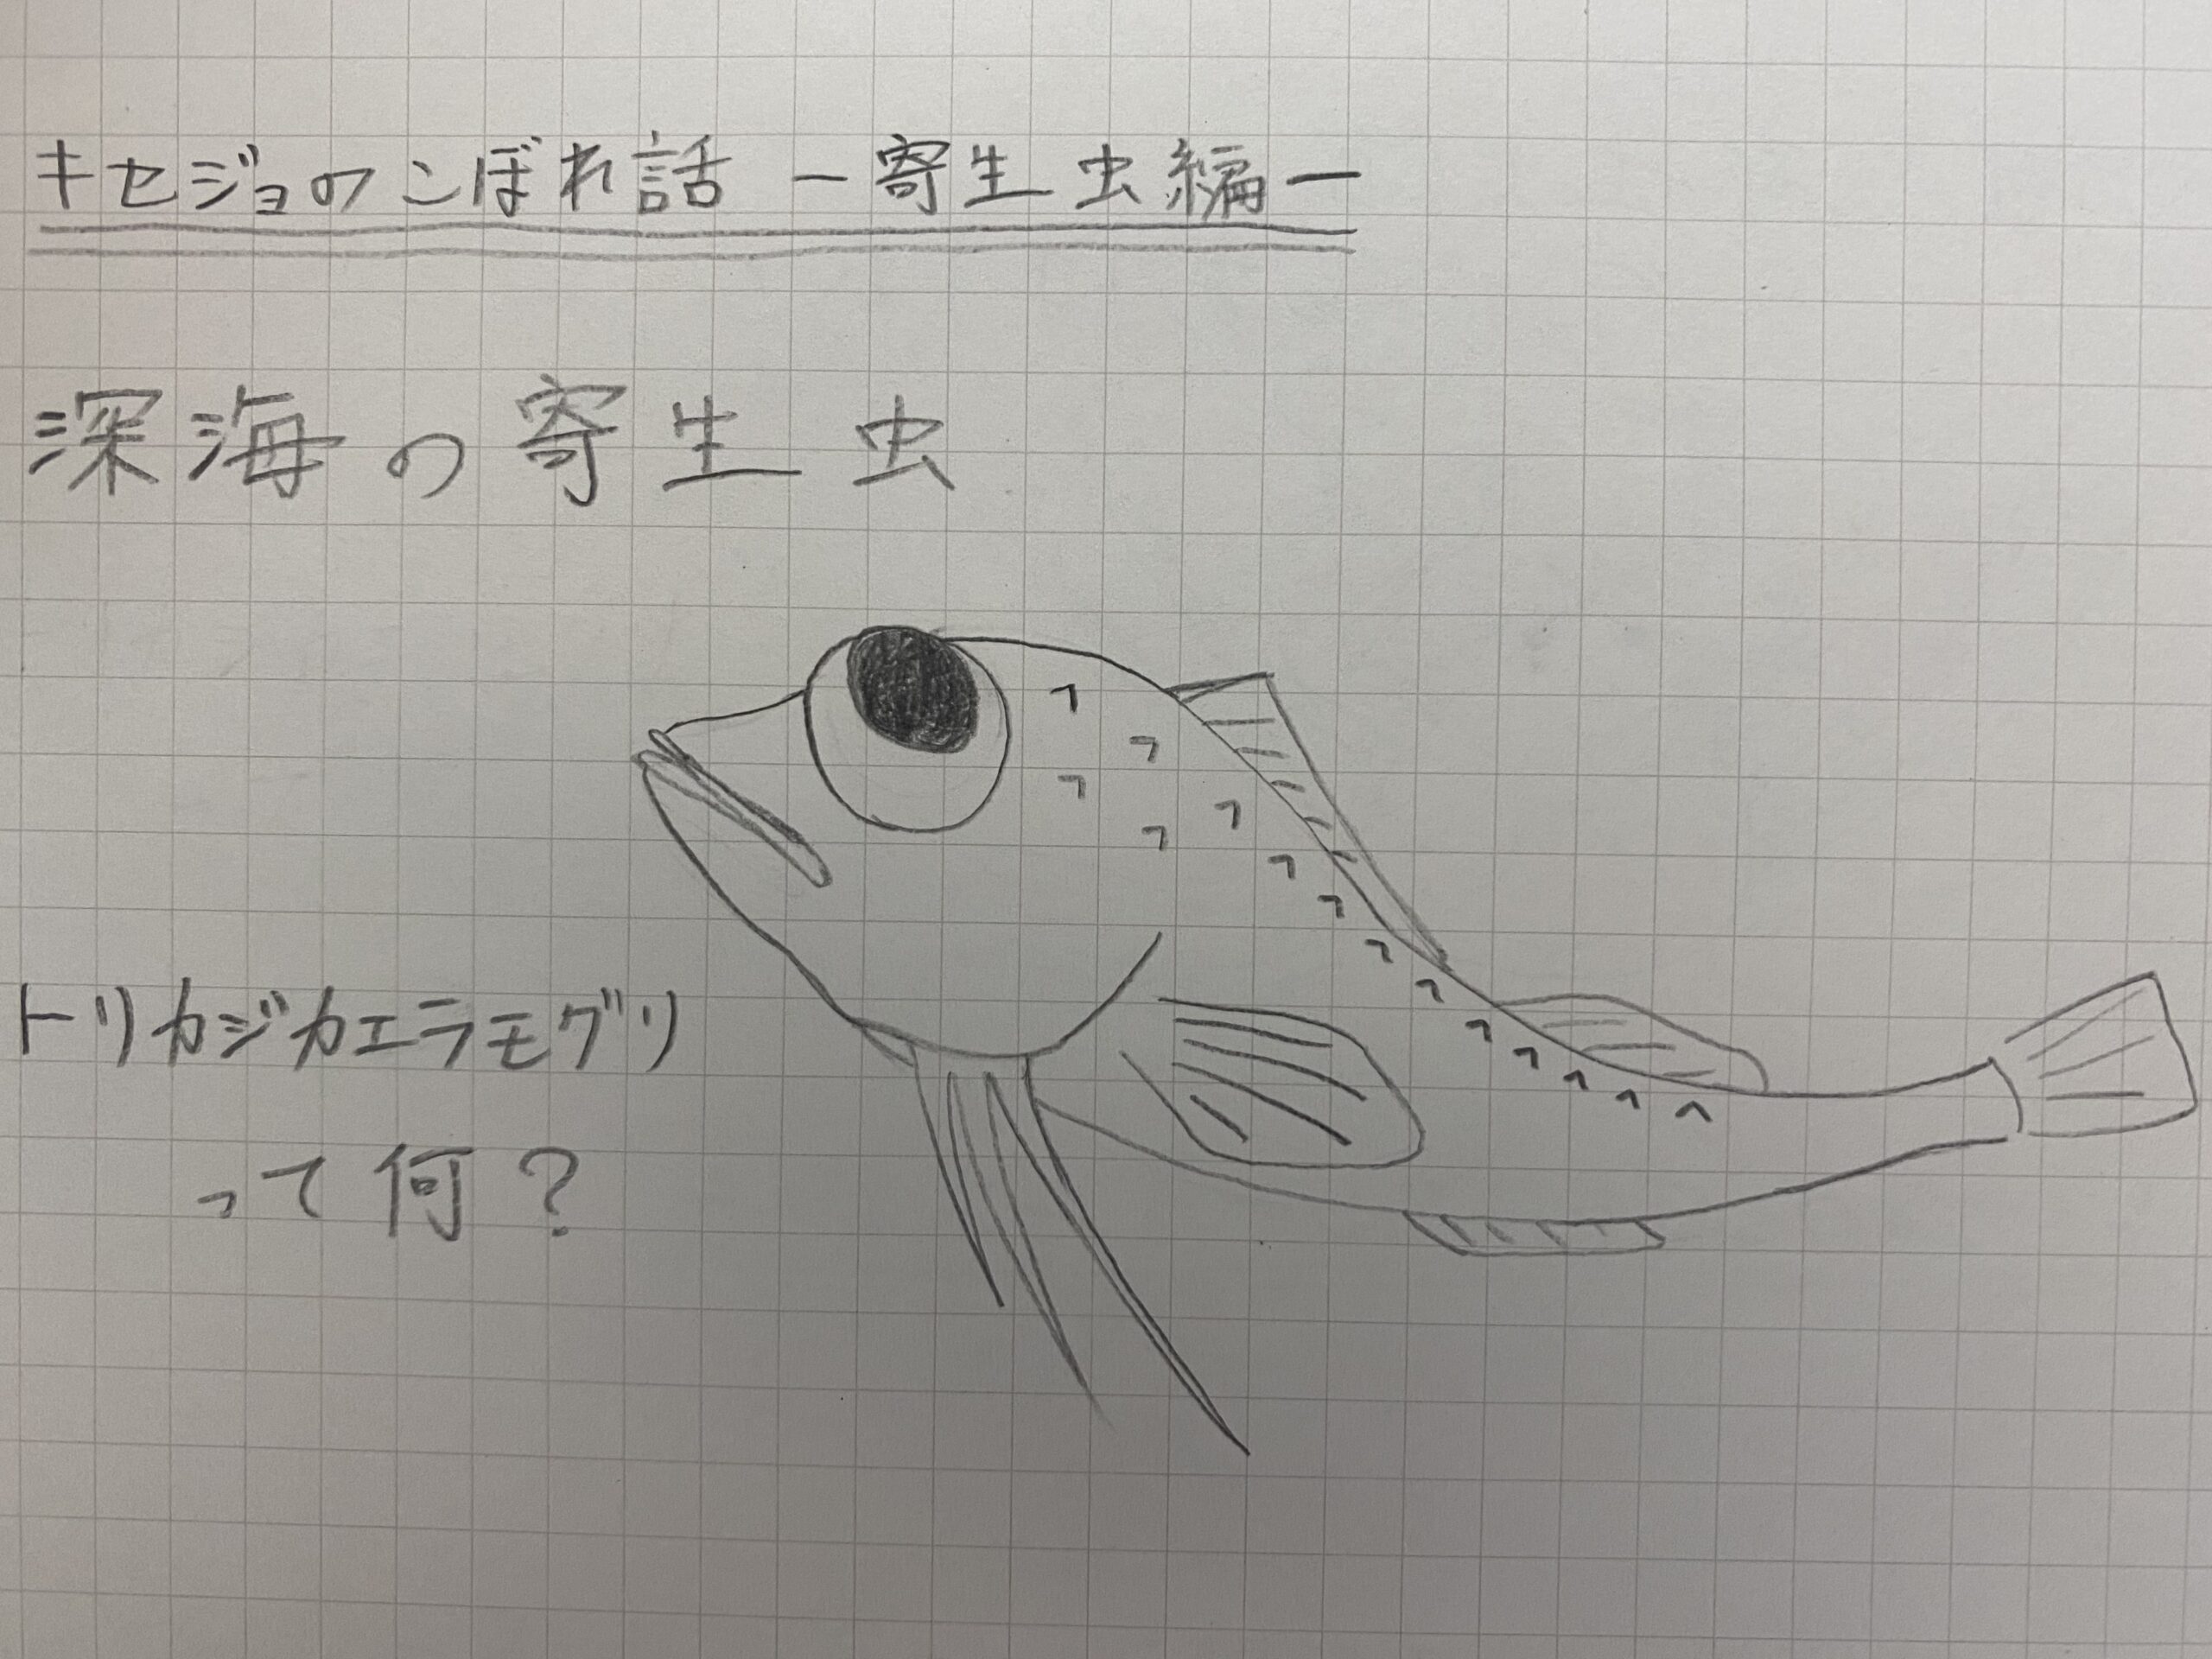 キセジョのこぼれ話 ー寄生虫編ー
深海の寄生虫
トリカジカエラモグリ
って何?